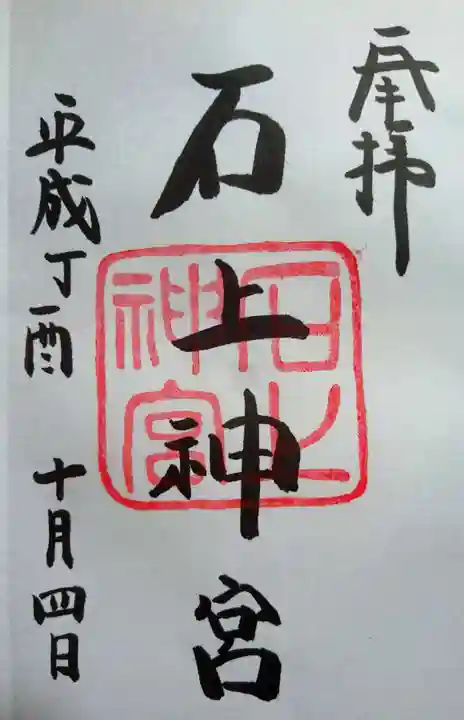 奉拝
石上神宮
石上
神宮
平成丁酉 十月四日